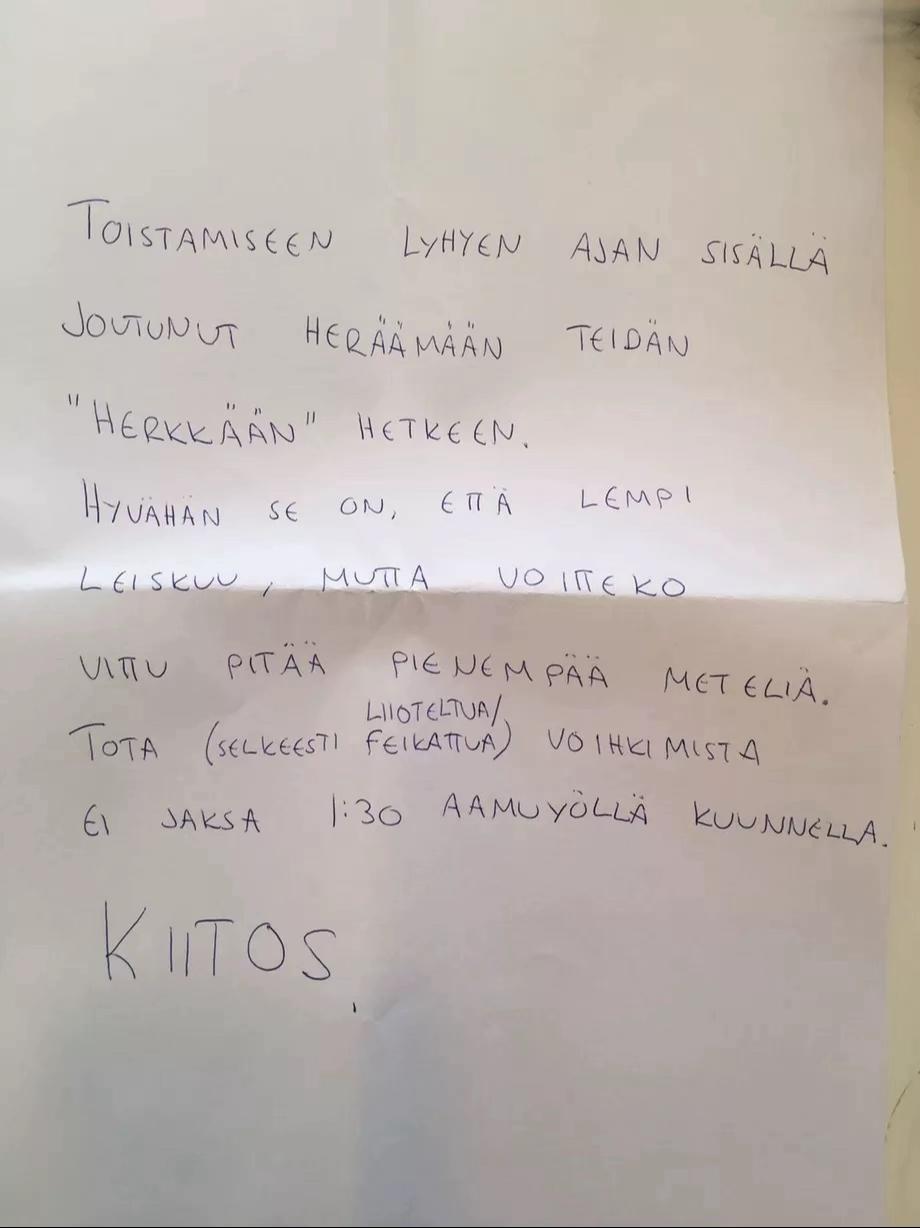 TOISTAMISEEN LYHYEN AJAN SISÄLLÄ
JOUTUNUT HERÄÄMÄÄN TEIDÄN
"HERKKÄÄN" HETKEEN.
HYVÄHÄN SE ON, ETTÄ LEMPI
LEISKUU, MUTTA VOITTEKO
VITTU PITÄÄ PIENEMPÄÄ METELIÄ.
LIIOTELTUA/
TOTA (SELKEESTI FEIKATTUA) VOIHKIMISTA
EI JAKSA 1:30 AAMUYÖLLÄ KUUNNELLA.
KIITOS.